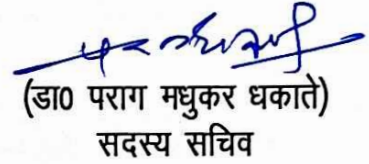 (डा0 पराग मधुकर धकाते)
सदस्य सचिव